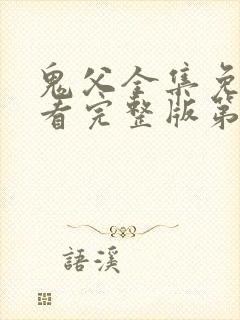 鬼父全集免
看完整版第
語溪